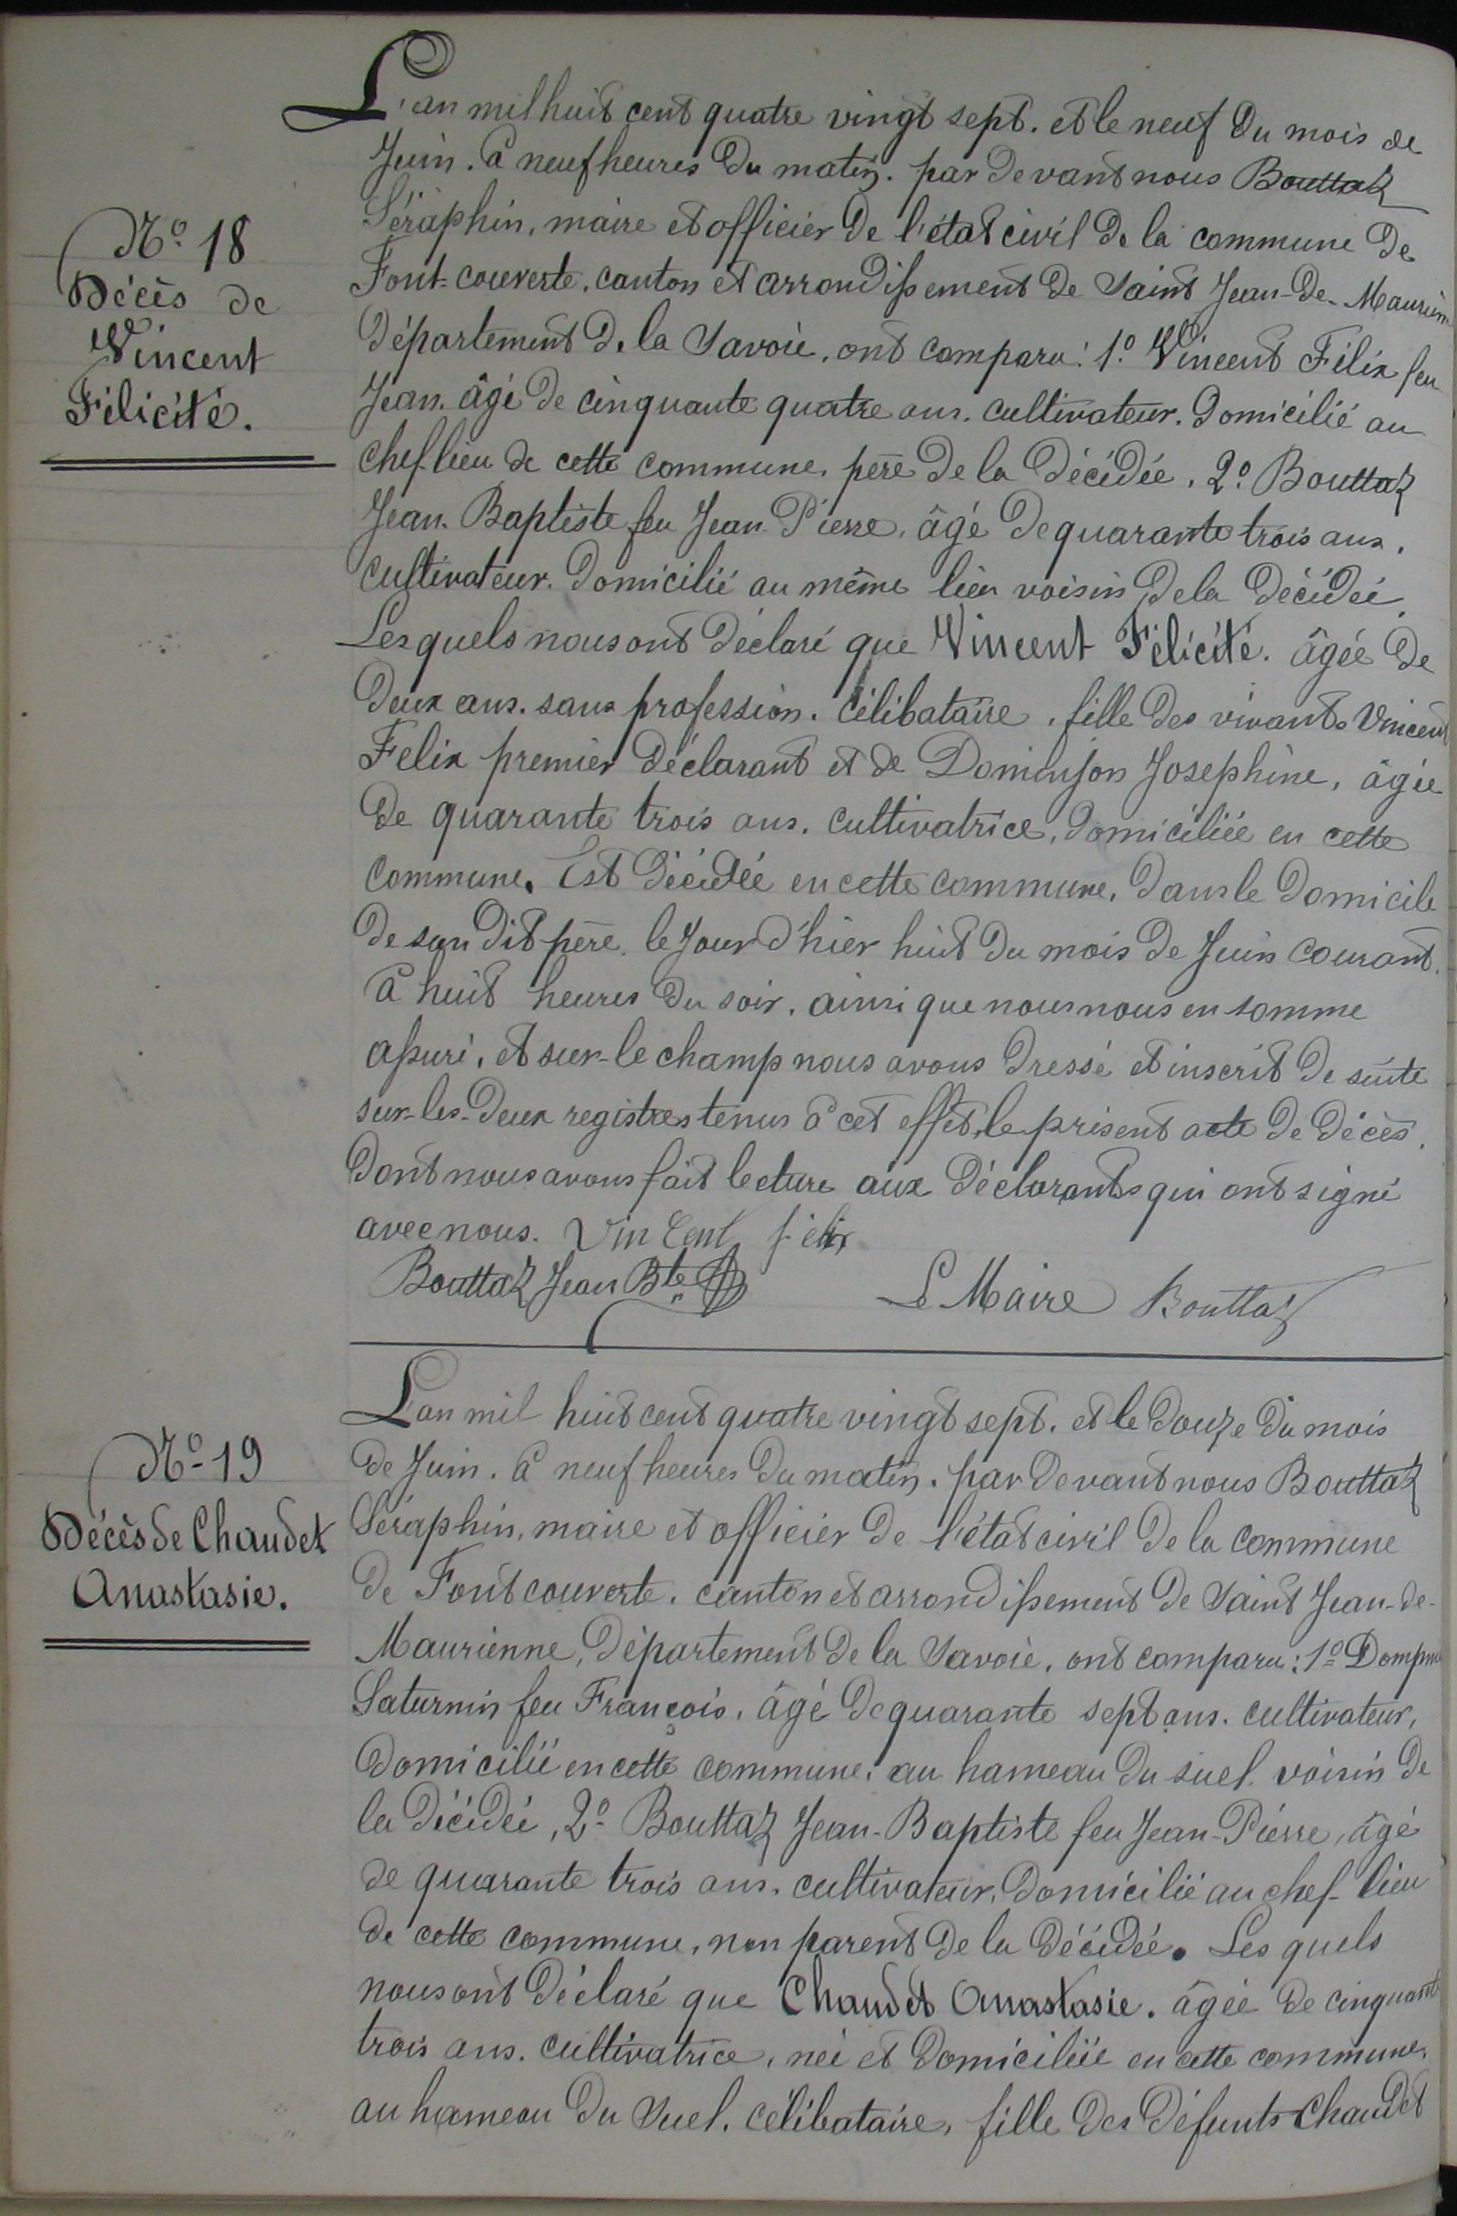 L'an mil huit cent quatre vingt sept. et le neuf du mois de
Juin. à neuf heures du matin. par devant nous Bouttaz
Séraphin, maire et officier de l'état civil de la commune de
Font-couverte, canton et arrondissement de Saint Jean-de-Maurienne
N° 18
Décès de
Vincent
Félicité.
département de la Savoie, ont comparu: 1° Vincent Félix feu
Jean. âgé de cinquante quatre ans. cultivateur. domicilié au
chef-lieu de cette commune. père de la décédée, 2° Bouttaz
Jean-Baptiste feu Jean-Pierre, âgé de quarante trois ans.
cultivateur. domicilié au même lieu voisin de la décédée.
Les quels nous ont déclaré que Vincent Félicité. âgée de
deux ans. sans profession. célibataire, fille des vivants Vincent
Felix premier déclarant et de Dominjon Josephine, âgée
de quarante trois ans. cultivatrice, domiciliée en cette
commune. Est décédée en cette commune, dans le domicile
de son dit père. le jour d'hier huit du mois de Juin courant.
à huit heures du soir. ainsi que nous nous en somme
assuré, et sur-le champ nous avons dressé et inscrit de suite
sur-les-deux registres tenus à cet effet, le présent acte de décès.
dont nous avons fait lecture aux déclarants qui ont signé
avec nous. Vin Cent félix
Bouttaz Jean Bte
Le Maire Bouttaz
L'an mil huit cent quatre vingt sept. et le douze du mois
de Juin. à neuf heures du matin. par devant nous Bouttaz
Séraphin, maire et officier de l'état civil de la commune
de Fontcouverte. canton et arrondissement de Saint Jean-de-
N° 19
Décès de Chaudet
Anastasie.
Maurienne, département de la Savoie, ont comparu: 1°
Saturnin feu François, âgé de quarante sept ans. cultivateur,
domicilié en cette commune. au hameau du suel. voisin de
la décédée, 2° Bouttaz Jean-Baptiste feu Jean-Pierre, âgé
de quarante trois ans. cultivateur, domicilié au chef-lieu
de cette commune, non parent de la décédée. Les quels
nous ont déclaré que Chaudet Anastasie. âgée de cinquante
trois ans. cultivatrice, née et domiciliée en cette commune.
au hameau du Suel. célibataire, fille des défunts Chaudet